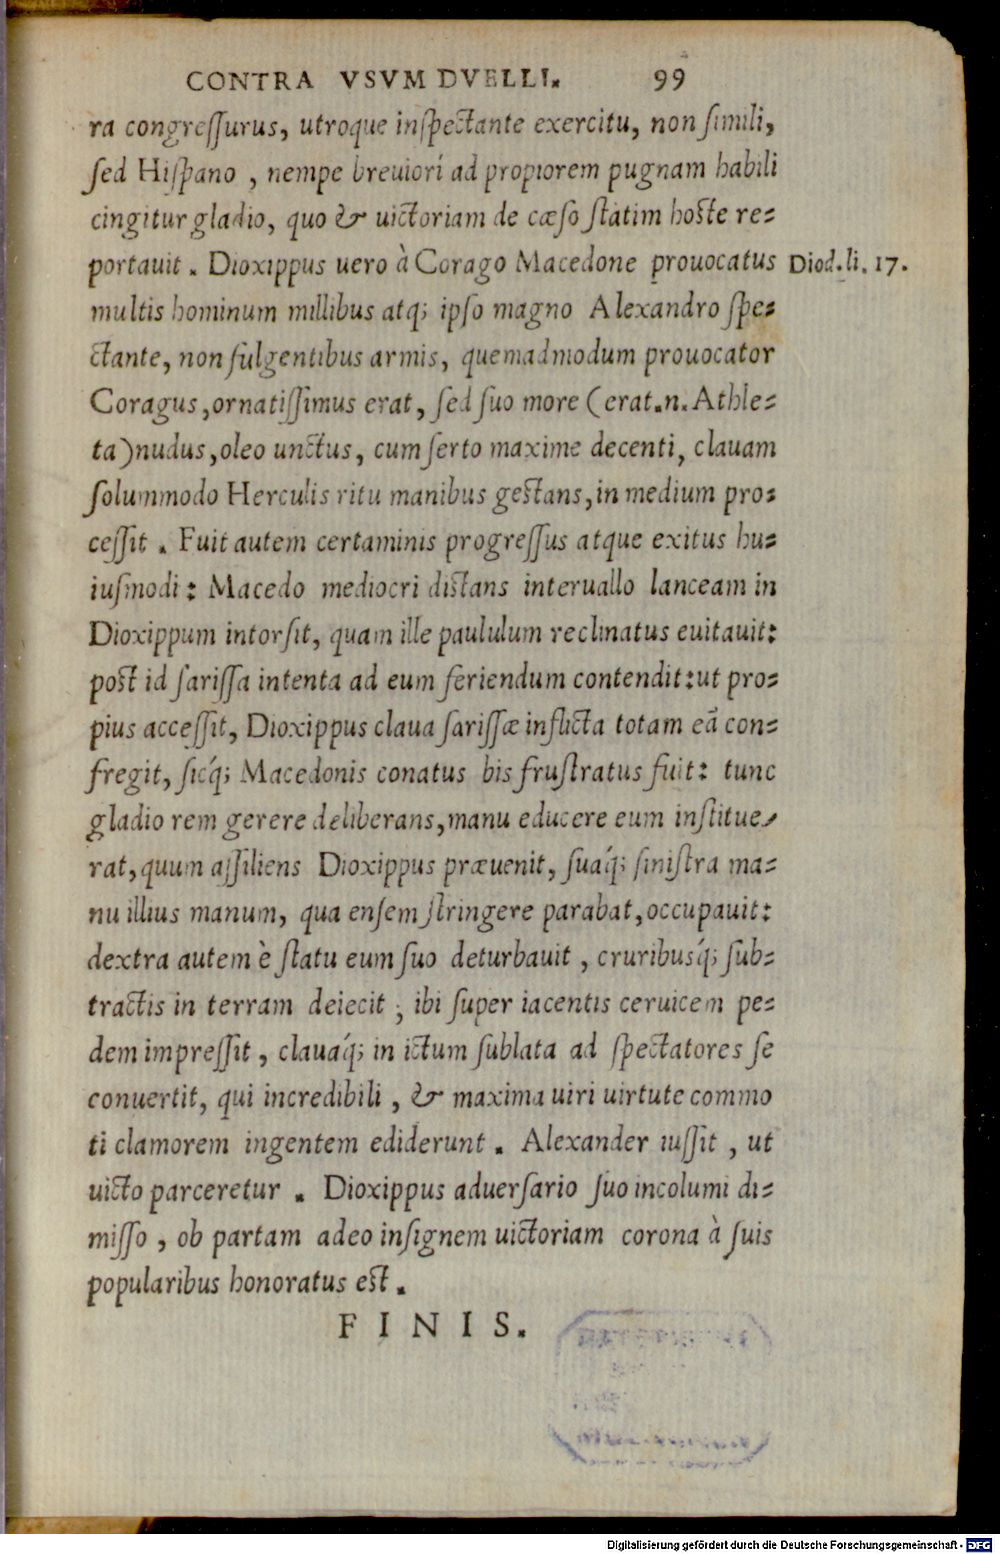 CONTRA VSVM DVELLI. 99
ra congreſſurus, utroque inſpectante exercitu, non ſimili,
ſed Hiſpano, nempe breuiori ad propiorem pugnam habili
cingitur gladio, quo & uictoriam de cæſo ſtatim hoſte re-
portauit. Dioxippus uero à Corago Macedone prouocatus
Diod. li. 17.
multis hominum millibus atq; ipſo magno Alexandro ſpe-
ctante, non fulgentibus armis, quemadmodum prouocator
Coragus, ornatiſſimus erat, ſed ſuo more (erat.n.Athle-
ta) nudus, oleo unctus, cum ſerto maxime decenti, clauam
ſolummodo Herculis ritu manibus geſtans, in medium pro-
ceſſit. Fuit autem certaminis progreſſus atque exitus hu-
iuſmodi: Macedo mediocri diſtans interuallo lanceam in
Dioxippum intorſit, quam ille paululum reclinatus euitauit:
poſt id ſariſſa intenta ad eum feriendum contendit: ut pro-
pius acceſſit, Dioxippus claua ſariſſæ inflicta totam eã con-
fregit, ſicq́; Macedonis conatus bis fruſtratus fuit: tunc
gladio rem gerere deliberans, manu educere eum inſtitue-
rat, quum aſſiliens Dioxippus præuenit, ſuaq́; ſiniſtra ma-
nu illius manum, qua enſem ſtringere parabat, occupauit:
dextra autem è ſtatu eum ſuo deturbauit, cruribusq́; ſub-
tractis in terram deiecit; ibi ſuper iacentis ceruicem pe-
dem impreſſit, clauaq́; in ictum ſublata ad ſpectatores ſe
conuertit, qui incredibili, & maxima uiri uirtute commo
ti clamorem ingentem ediderunt. Alexander iuſſit, ut
uicto parceretur. Dioxippus aduerſario ſuo incolumi di-
miſſo, ob partam adeo inſignem uictoriam corona à ſuis
popularibus honoratus eſt.
FINIS.
Digitalisierung gefördert durch die Deutsche Forschungsgemeinschaft - DFG